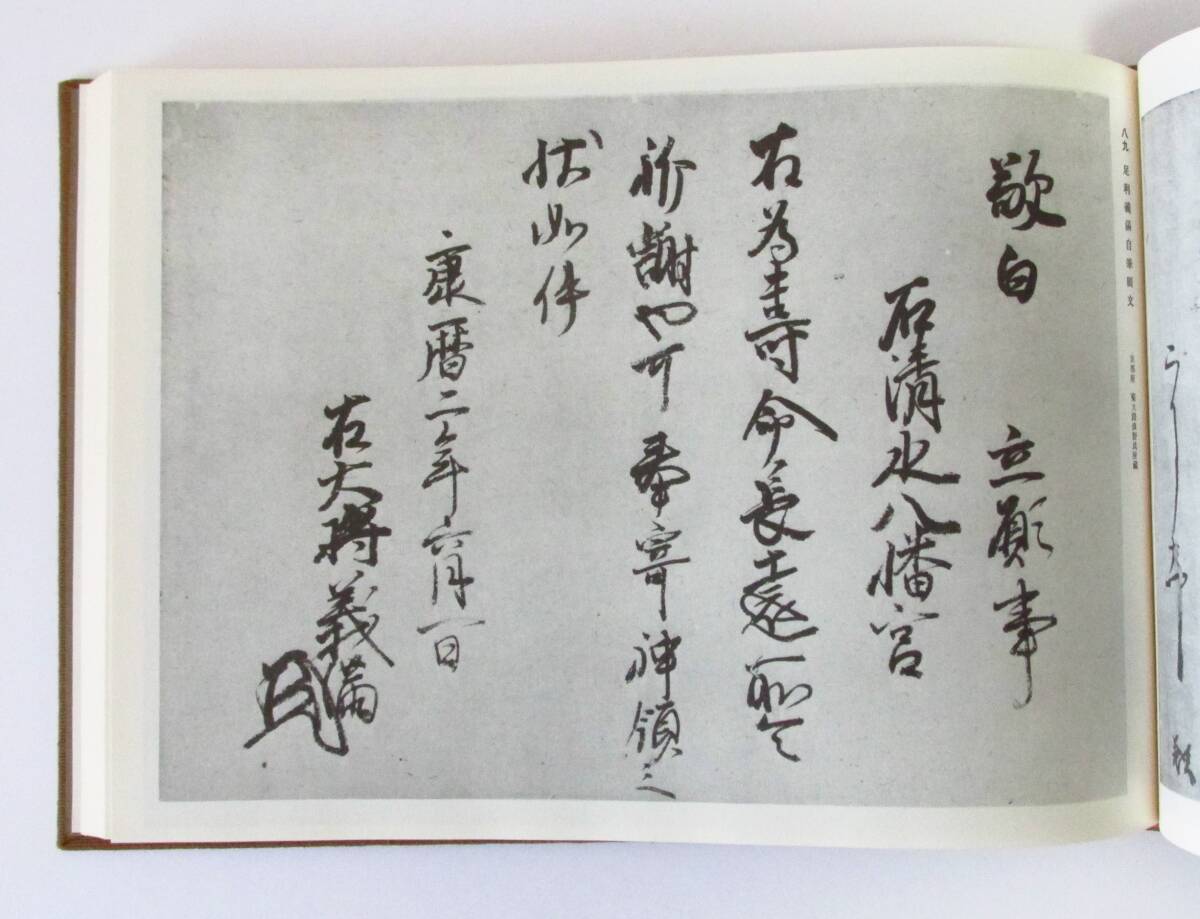 八九 足利義満自筆願文
敬白 立願事
石清水八幡宮
右為壽命長遠所令
祈謝也可奉寄神領之
状如件
康暦二年六月一日
右大将義満